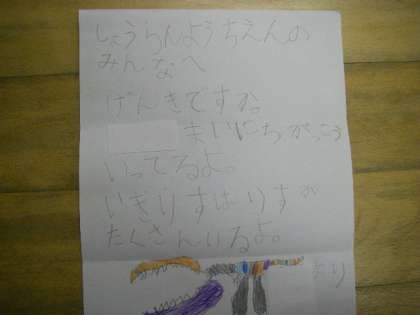 しょうらんようちえんの
みんなへ
げんきですか。
まいにちがっこう
いってるよ。
いぎりすはりすが
たくさんいるよ。
より